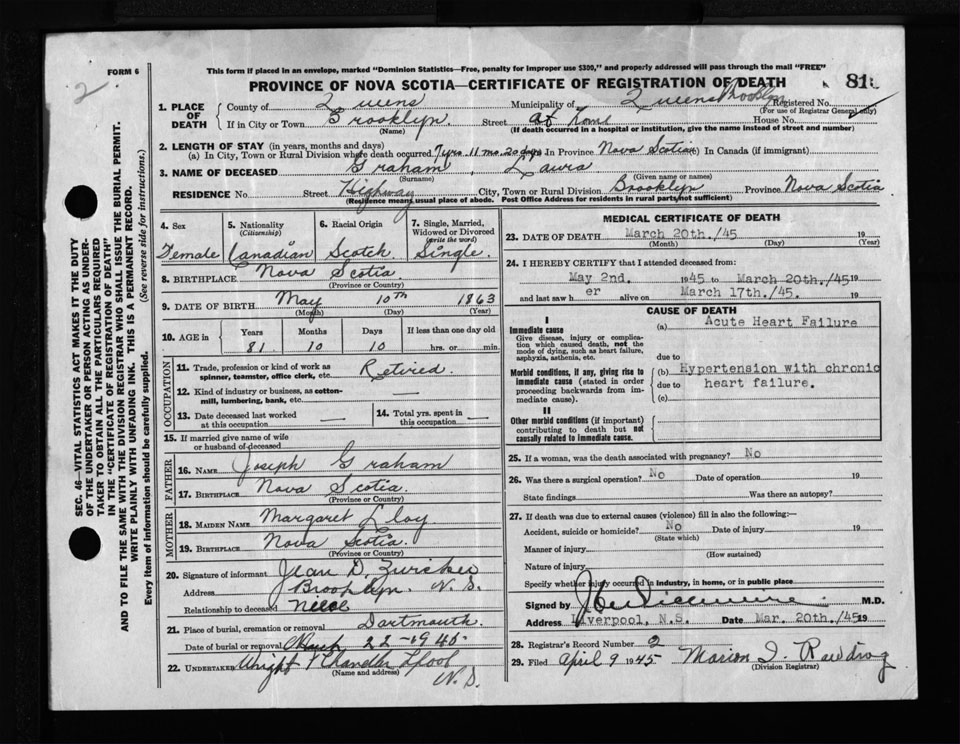 FORM 6
2
This form if placed in an envelope, marked "Dominion Statistics—Free, penalty for improper use $300," and properly addressed will pass through the mail "FREE"
PROVINCE OF NOVA SCOTIA—CERTIFICATE OF REGISTRATION OF DEATH
81
1. PLACE OF DEATH
County of Queens Municipality of Queens Brooklyn Registered No.
(For use of Registrar General only)
If in City or Town Brooklyn. Street at Home House No.
(Name) (If death occurred in a hospital or institution, give the name instead of street and number)
2. LENGTH OF STAY (in years, months and days)
(a) In City, Town or Rural Division where death occurred 7 yrs. 11 mo. 20 dys In Province Nova Scotia In Canada (if immigrant)
3. NAME OF DECEASED Graham, Laura
(Surname) (Given name or names)
RESIDENCE No. Street Highway City, Town or Rural Division Brooklyn Province Nova Scotia
(Residence means usual place of abode. Post Office Address for residents in rural parts not sufficient)
4. Sex
Female
5. Nationality
(Citizenship)
Canadian
6. Racial Origin
Scotch
7. Single, Married, Widowed or Divorced
(write the word)
Single.
8. BIRTHPLACE Nova Scotia.
(Province or Country)
9. DATE OF BIRTH May 10th 1863
(Month) (Day) (Year)
10. AGE in
Years Months Days If less than one day old
81 10 10 hrs. or min.
OCCUPATION
11. Trade, profession or kind of work as spinner, teamster, office clerk, etc. Retired.
12. Kind of industry or business, as cotton-mill, lumbering, bank, etc.
13. Date deceased last worked at this occupation
14. Total yrs. spent in this occupation
15. If married give name of wife or husband of deceased
FATHER
16. NAME Joseph Graham
17. BIRTHPLACE Nova Scotia.
(Province or Country)
MOTHER
18. MAIDEN NAME Margaret Lloy
19. BIRTHPLACE Nova Scotia.
(Province or Country)
20. Signature of informant Jean D. Zwicker
Address Brooklyn. N.S.
Relationship to deceased Niece
21. Place of burial, cremation or removal Dartmouth.
Date of burial or removal March 22-1945.
22. UNDERTAKER Wright & Chandler Lpool N.S.
(Name and address)
MEDICAL CERTIFICATE OF DEATH
23. DATE OF DEATH March 20th./45 19
(Month) (Day) (Year)
24. I HEREBY CERTIFY that I attended deceased from:
May 2nd. 1945 to March 20th./45 19
and last saw her alive on March 17th/45. 19
CAUSE OF DEATH
I
Immediate cause
Give disease, injury or complication which caused death, not the mode of dying, such as heart failure, asphyxia, asthenia, etc.
(a) Acute Heart Failure
due to
Morbid conditions, if any, giving rise to immediate cause (stated in order proceeding backwards from immediate cause).
(b) Hypertension with chronic
due to heart failure.
(c)
II
Other morbid conditions (if important) contributing to death but not causally related to immediate cause.
25. If a woman, was the death associated with pregnancy? No
26. Was there a surgical operation? No Date of operation 19
State findings Was there an autopsy?
27. If death was due to external causes (violence) fill in also the following:—
Accident, suicide or homicide? No Date of injury 19
(State which)
Manner of injury
(How sustained)
Nature of injury
Specify whether injury occurred in industry, in home, or in public place
Signed by M.D.
Address Liverpool, N.S. Date Mar. 20th./45 19
28. Registrar's Record Number 2
29. Filed April 9 1945 Marion I.
(Division Registrar)
SEC. 46—VITAL STATISTICS ACT MAKES IT THE DUTY
OF THE UNDERTAKER OR PERSON ACTING AS UNDER-
TAKER TO OBTAIN ALL THE PARTICULARS REQUIRED
IN THE "CERTIFICATE OF REGISTRATION OF DEATH"
AND TO FILE THE SAME WITH THE DIVISION REGISTRAR WHO SHALL ISSUE THE BURIAL PERMIT.
WRITE PLAINLY WITH UNFADING INK. THIS IS A PERMANENT RECORD.
Every item of information should be carefully supplied. (See reverse side for instructions.)